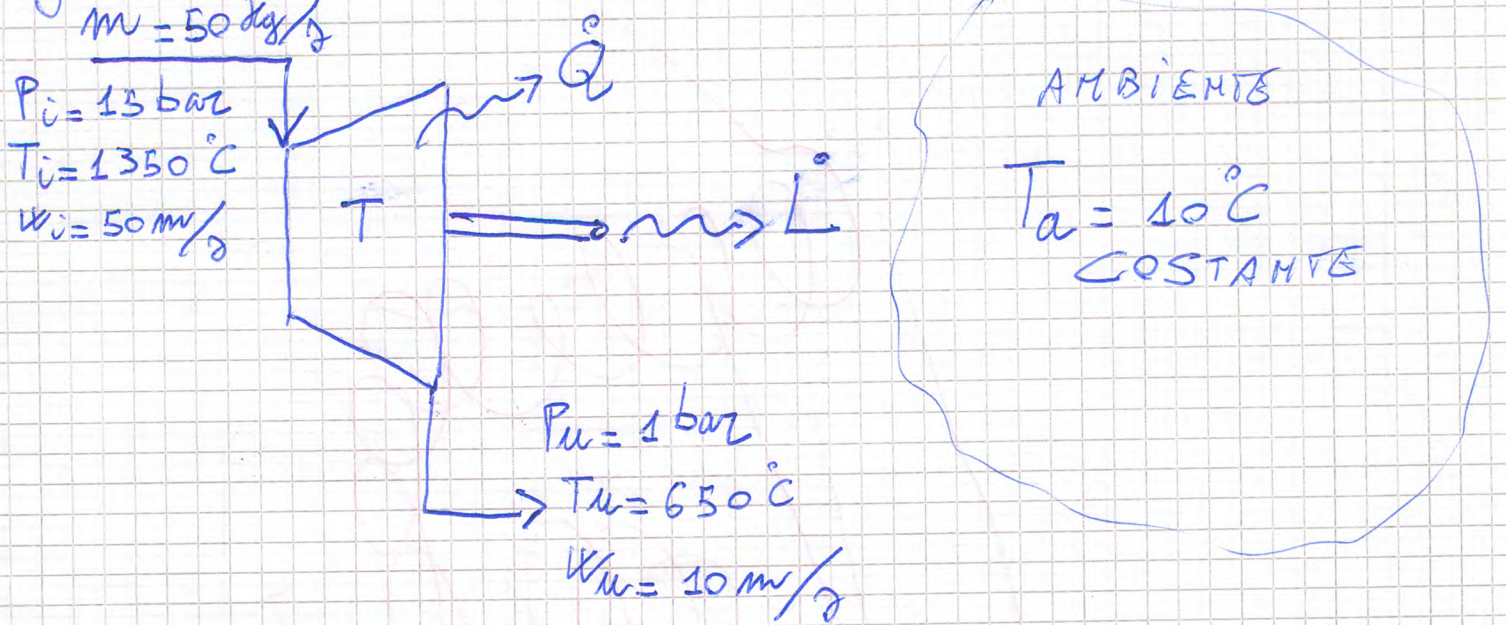 m = 50 Kg/s
Pi = 15 bar
Ti = 1350 °C
wi = 50 m/s
Q̇
T
L̇
Pu = 1 bar
Tu = 650 °C
wu = 10 m/s
AMBIENTE
Ta = 10 °C
COSTANTE